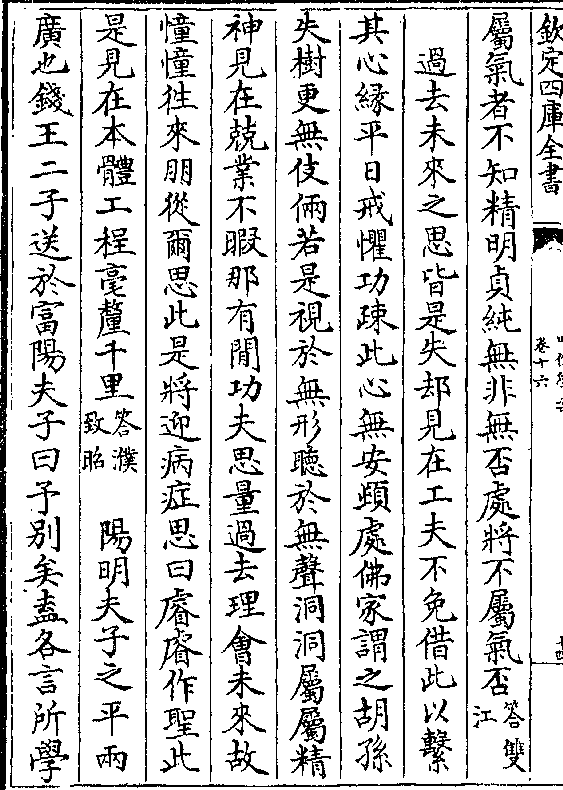 欽定四庫全書
卷十六
屬氣者不知精明貞純無非無否處將不屬氣否答雙江
過去未來之思皆是失却見在工夫不免借此以繫
其心緣平日戒懼功疎此心無安頓處佛家謂之胡孫
失樹更無伎倆若是視於無形聽於無聲洞洞屬屬精
神見在兢業不暇那有閒功夫思量過去理會未來故
憧憧徃來朋從爾思此是將迎病症思曰睿睿作聖此
是見在本體工程毫釐千里答濮致昭 陽明夫子之平兩
廣也錢王二子送於富陽夫子曰予别矣盍各言所學